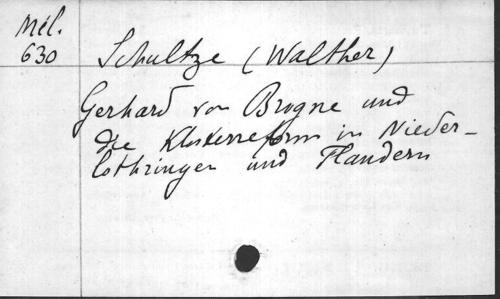 Mél.
630
Schultze (Walther)
Gerhard von Brogne und
die Klosterreform in Nieder-
lothringen und Flandern